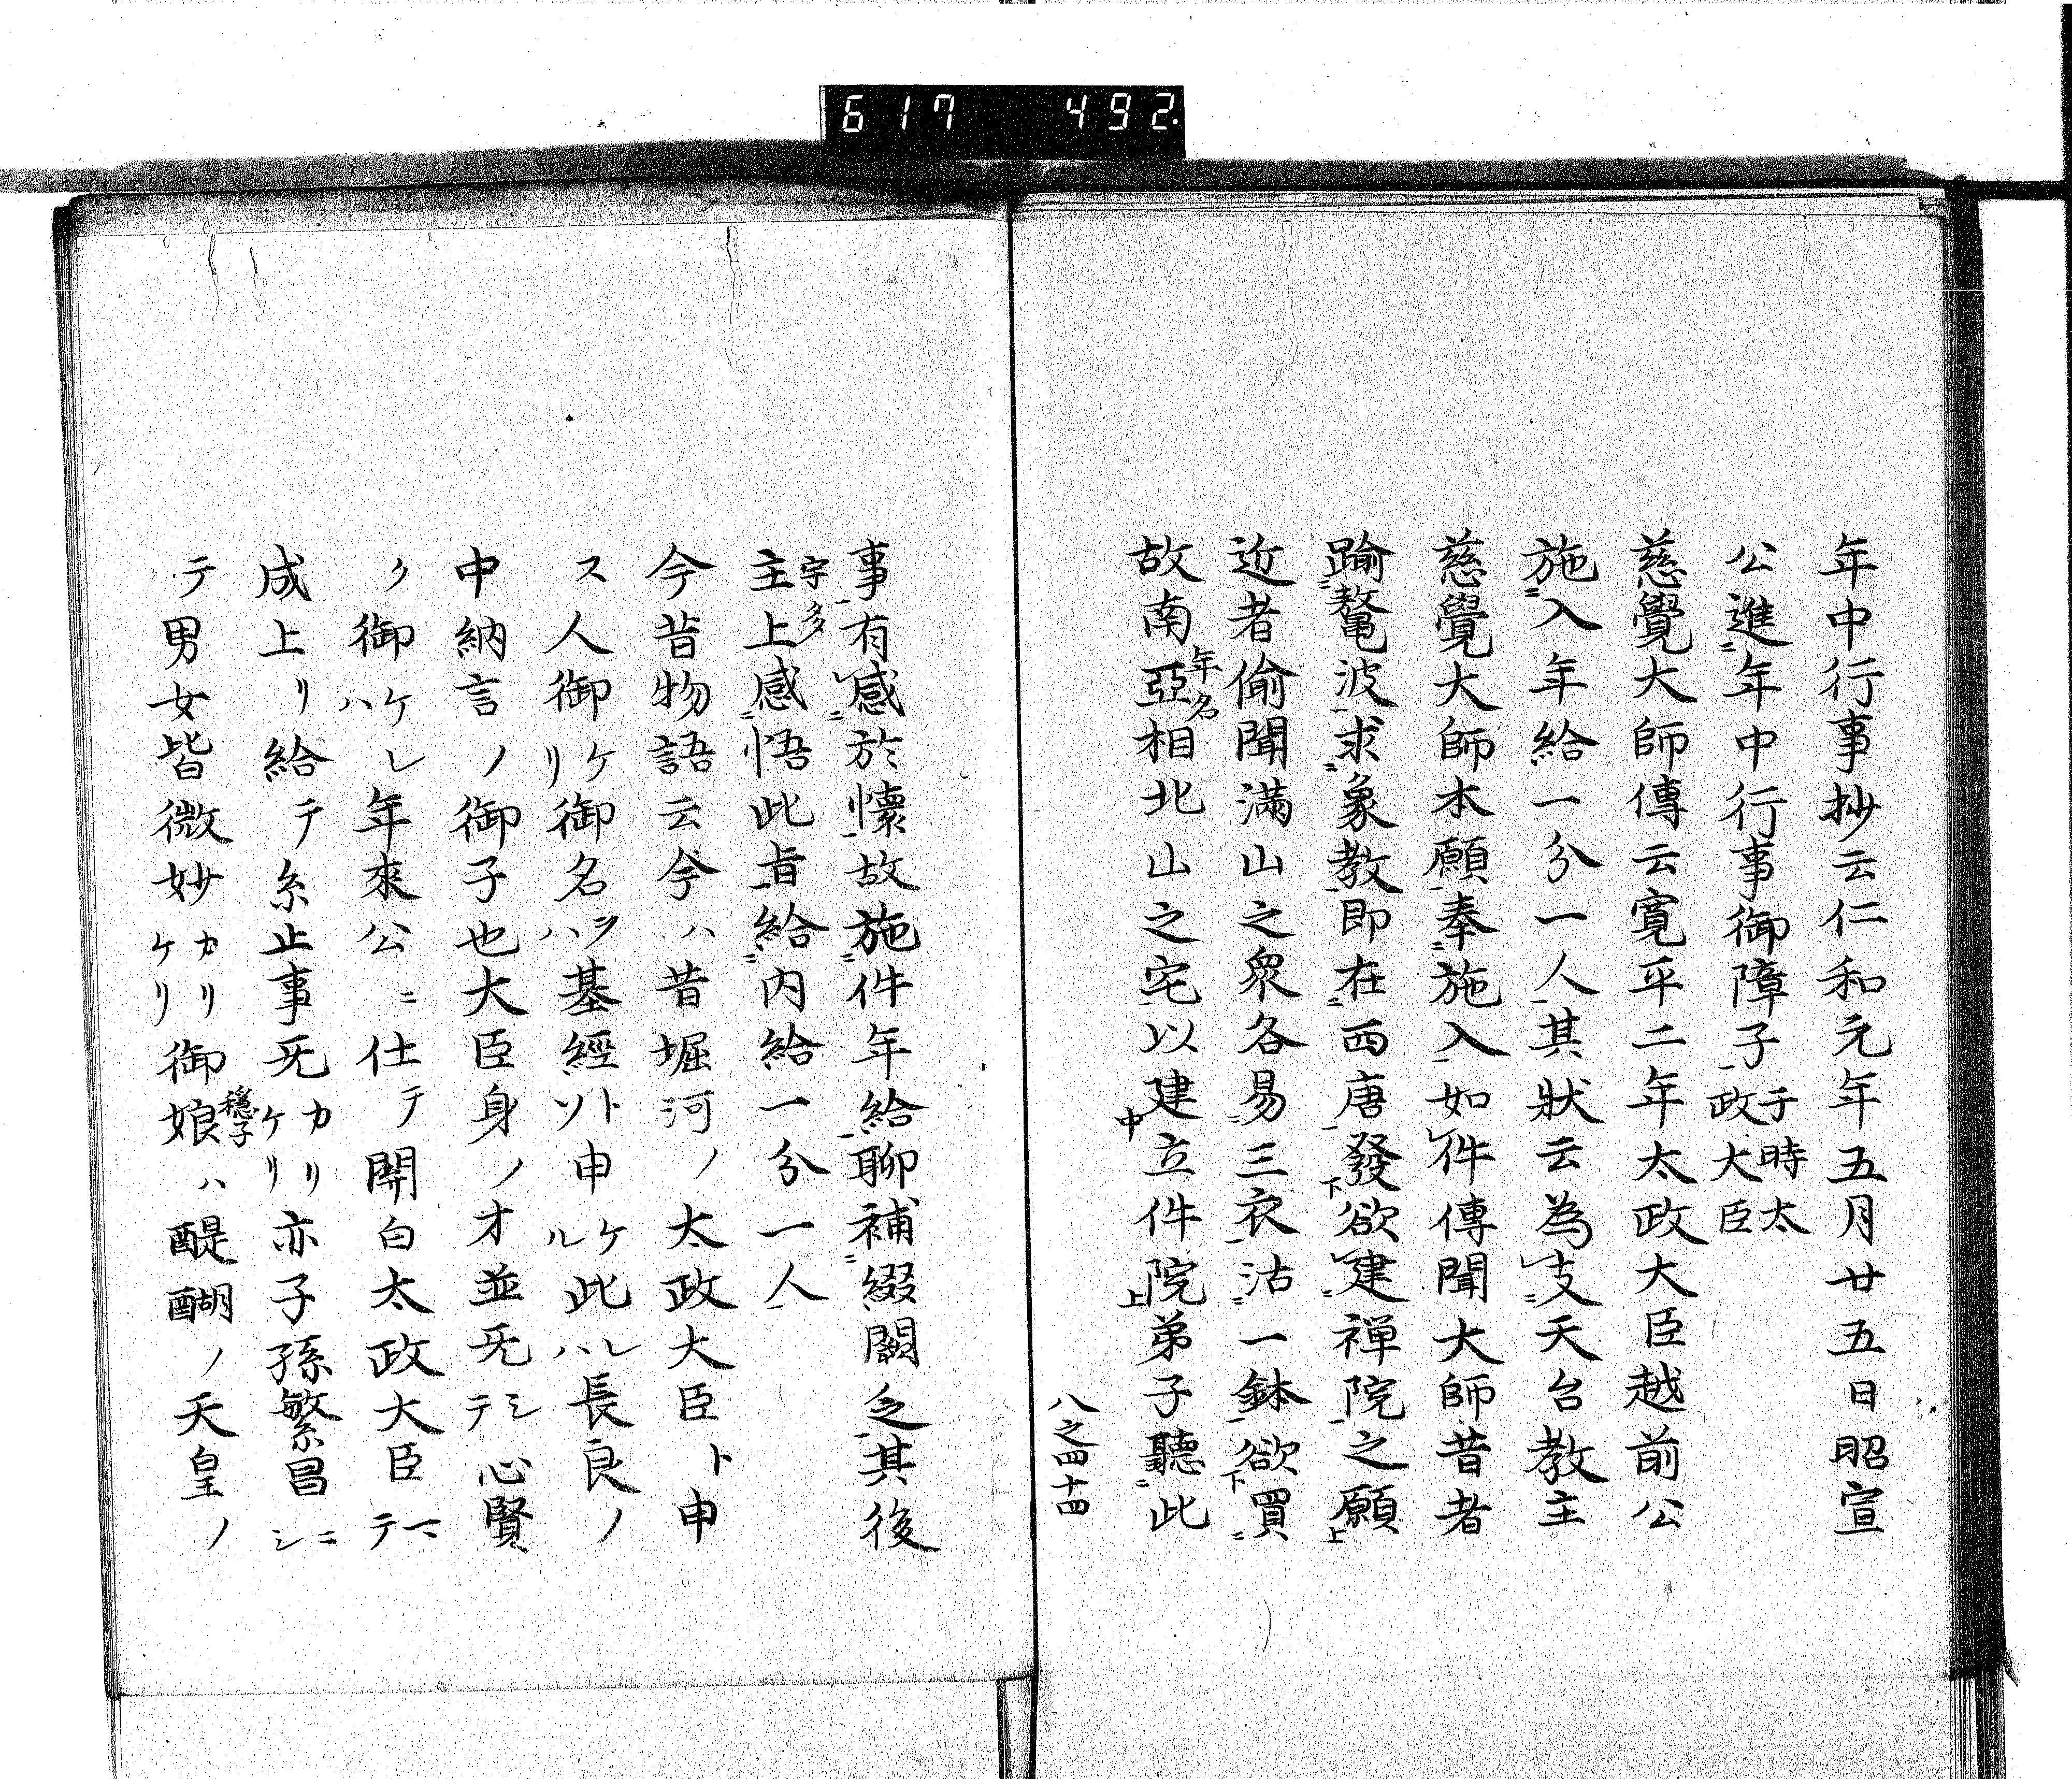 617 492.
年中行事抄云仁和元年五月廿五日昭宣
公進年中行事御障子于時太政大臣
慈覺大師傳云寛平二年太政大臣越前公
施入年給一分一人其狀云為支天台教主
慈覺大師本願奉施入如件傳聞大師昔者
踰鼇波求象教即在西唐發欲建禅院之願
近者偷聞滿山之衆各易三衣沽一鉢欲買
故南亞相年名北山之宅以建立件院弟子聽此
八之四十四
事有感於懷故施件年給聊補綴闕乏其後
主上宇多感悟此旨給内給一分一人
今昔物語云今ハ昔堀河ノ太政大臣ト申
ス人御ケリ御名ヲハ基經トソ申ケル此レハ長良ノ
中納言ノ御子也大臣身ノ才並旡シテ心賢
ク御ケレハ年來公ニ仕テ關白太政大臣マテ
成上リ給テ糸止事旡カリケリ亦子孫繁昌ニシ
テ男女皆微妙カリケリ御娘穩子ハ醍醐ノ天皇ノ